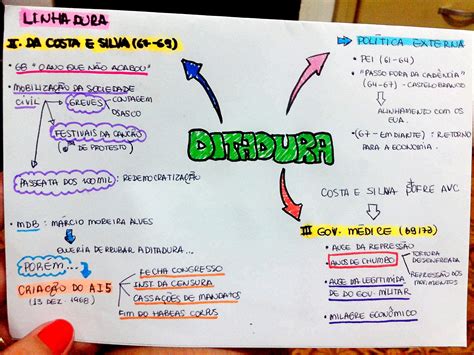 LINHA DURA
II. DA COSTA E SILVA (67-69)
• 68 "O ANO QUE NÃO ACABOU"
• MOBILIZAÇÃO DA SOCIEDADE
CIVIL
GREVES
CONTAGEM
OSASCO
FESTIVAIS DA CANÇÃO
DE PROTESTO)
PASSEATA DOS 100 MIL
: REDEMOCRATIZAÇÃO
• MDB: MÁRCIO MOREIRA ALVES
QUERIA DERRUBAR A DITADURA...
PORÉM...
CRIAÇÃO DO AI5
(13 DEZ. 1968)
FECHA CONGRESSO
INST. DA CENSURA
CASSAÇÕES DE MANDATOS
FIM DO HABEAS CORPUS
DITADURA
POLÍTICA EXTERNA
• PEI (61-64)
• "PASSO FORA DA CADÊNCIA"
(64-67) - CASTELO BRANCO
ALINHAMENTO COM OS
EUA.
• (67 - EM DIANTE): RETORNO
PARA A ECONOMIA.
COSTA E SILVA SOFRE AVC
III GOV. MÉDICE (69/73)
• AUGE DA REPRESSÃO
• ANOS DE CHUMBO
TORTURA
DESENFREADA
REPRESSÃO AOS
MOVIMENTOS
• AUGE DA LEGITIMIDA
DE DO GOV. MILITAR
• MILAGRE ECONÔMICO